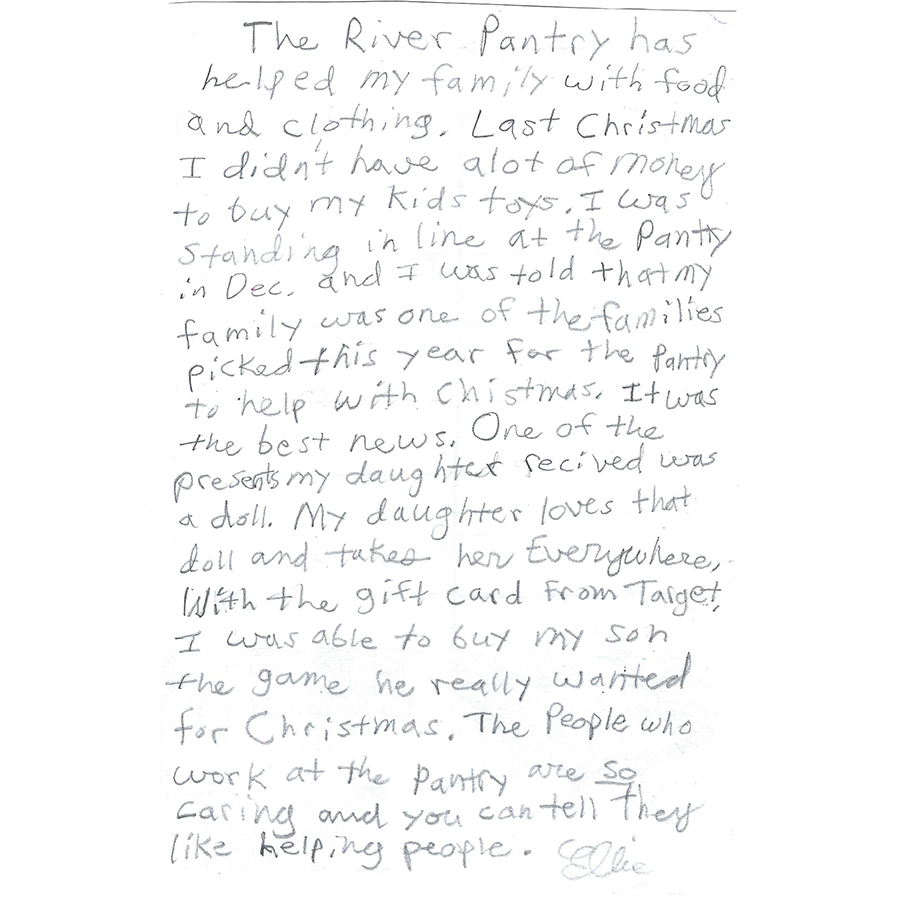 The River Pantry has
helped my family with food
and clothing. Last Christmas
I didn't have alot of money
to buy my kids toys. I was
standing in line at the Pantry
in Dec. and I was told that my
family was one of the families
picked this year for the Pantry
to help with Chistmas. It was
the best news. One of the
presents my daughter recived was
a doll. My daughter loves that
doll and takes her Everywhere,
With the gift card from Target,
I was able to buy my son
the game he really wanted
for Christmas. The People who
work at the Pantry are so
caring and you can tell they
like helping people. Ellie